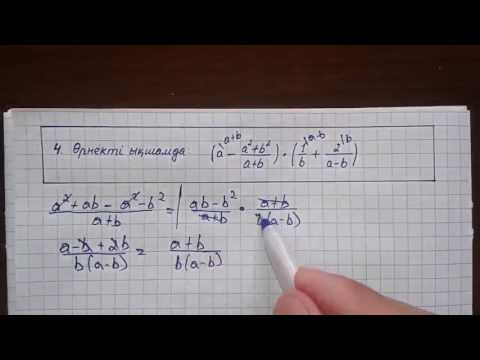 4. Өрнекті ықшамда (a^{a+b} - \frac{a²+b²}{a+b}) • (\frac{1}{b}^{a-b} + \frac{2}{a-b}^{b})
\frac{a²+ab-a²-b²}{a+b} = | \frac{ab-b²}{a+b} • \frac{a+b}{b(a-b)}
\frac{a-b+2b}{b(a-b)} = \frac{a+b}{b(a-b)}